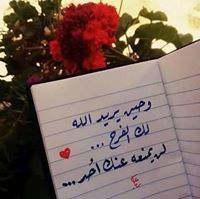 وحين يريد الله
لك الفرح ...
لن يمنعه عنك أحد ...